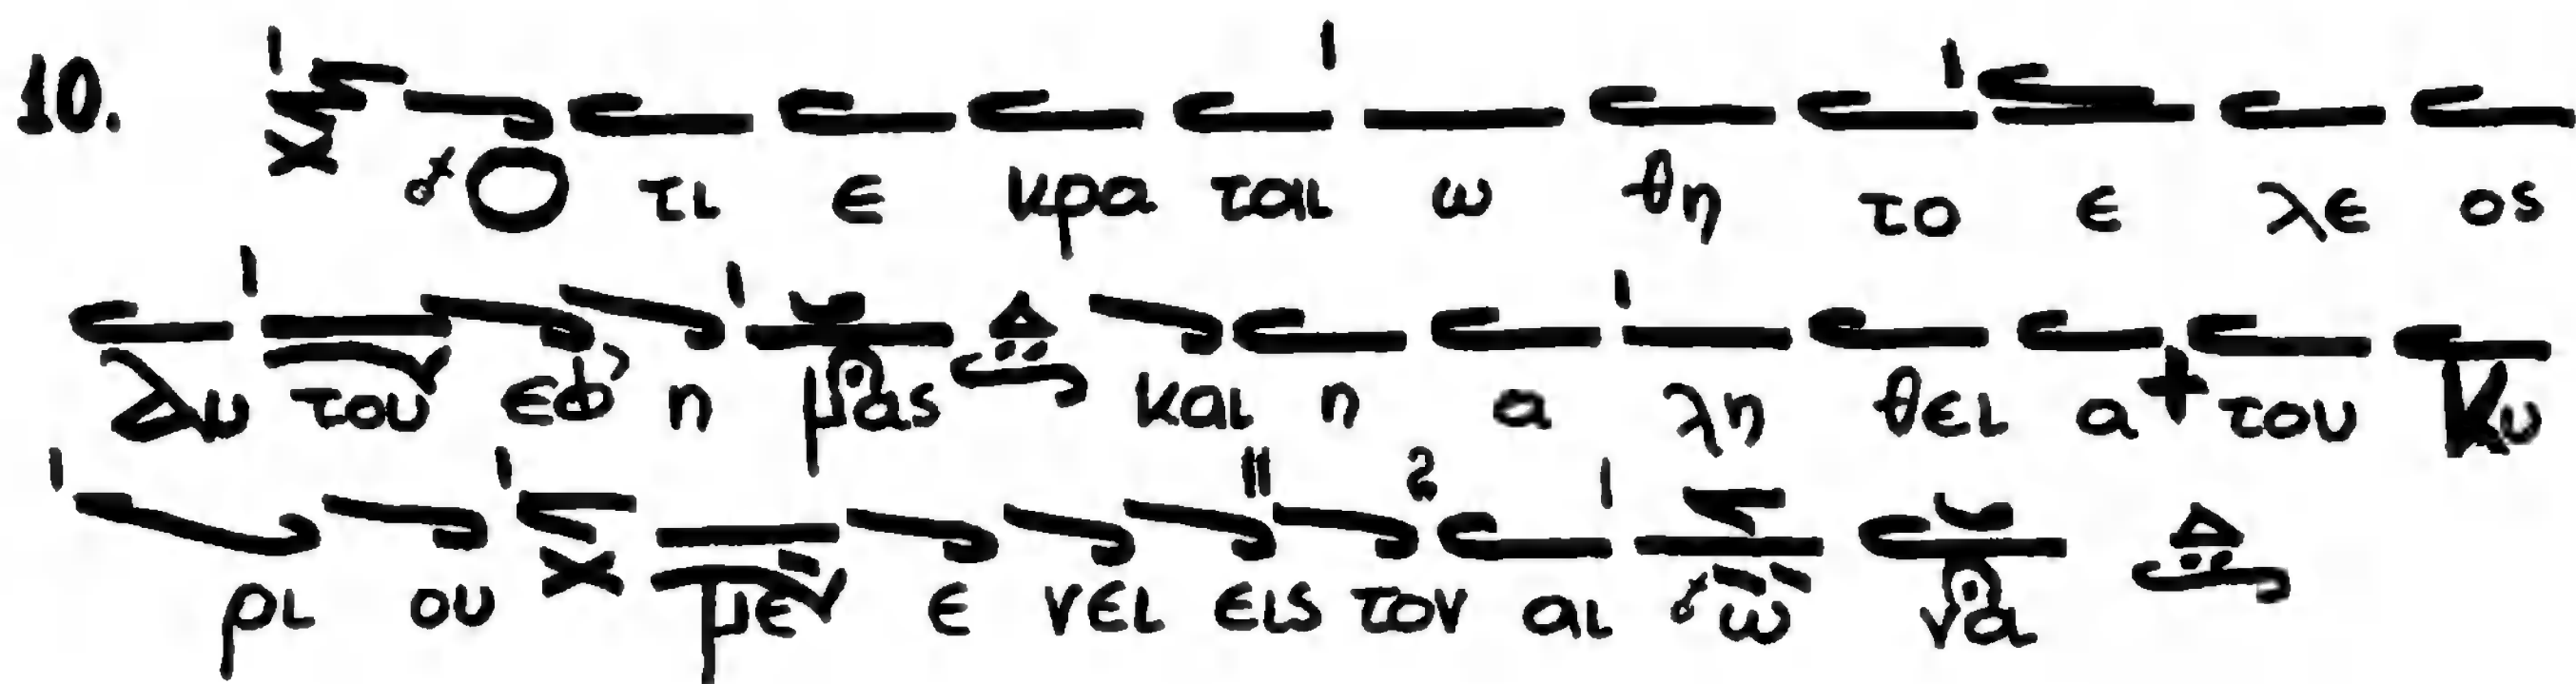 10. Ο τι ε κρα ται ω θη το ε λε ος
Αυ του εφ' η μας Δ και η α λη θει α + του Κυ
ρι ου με ε νει εις τον αι ω να Δ